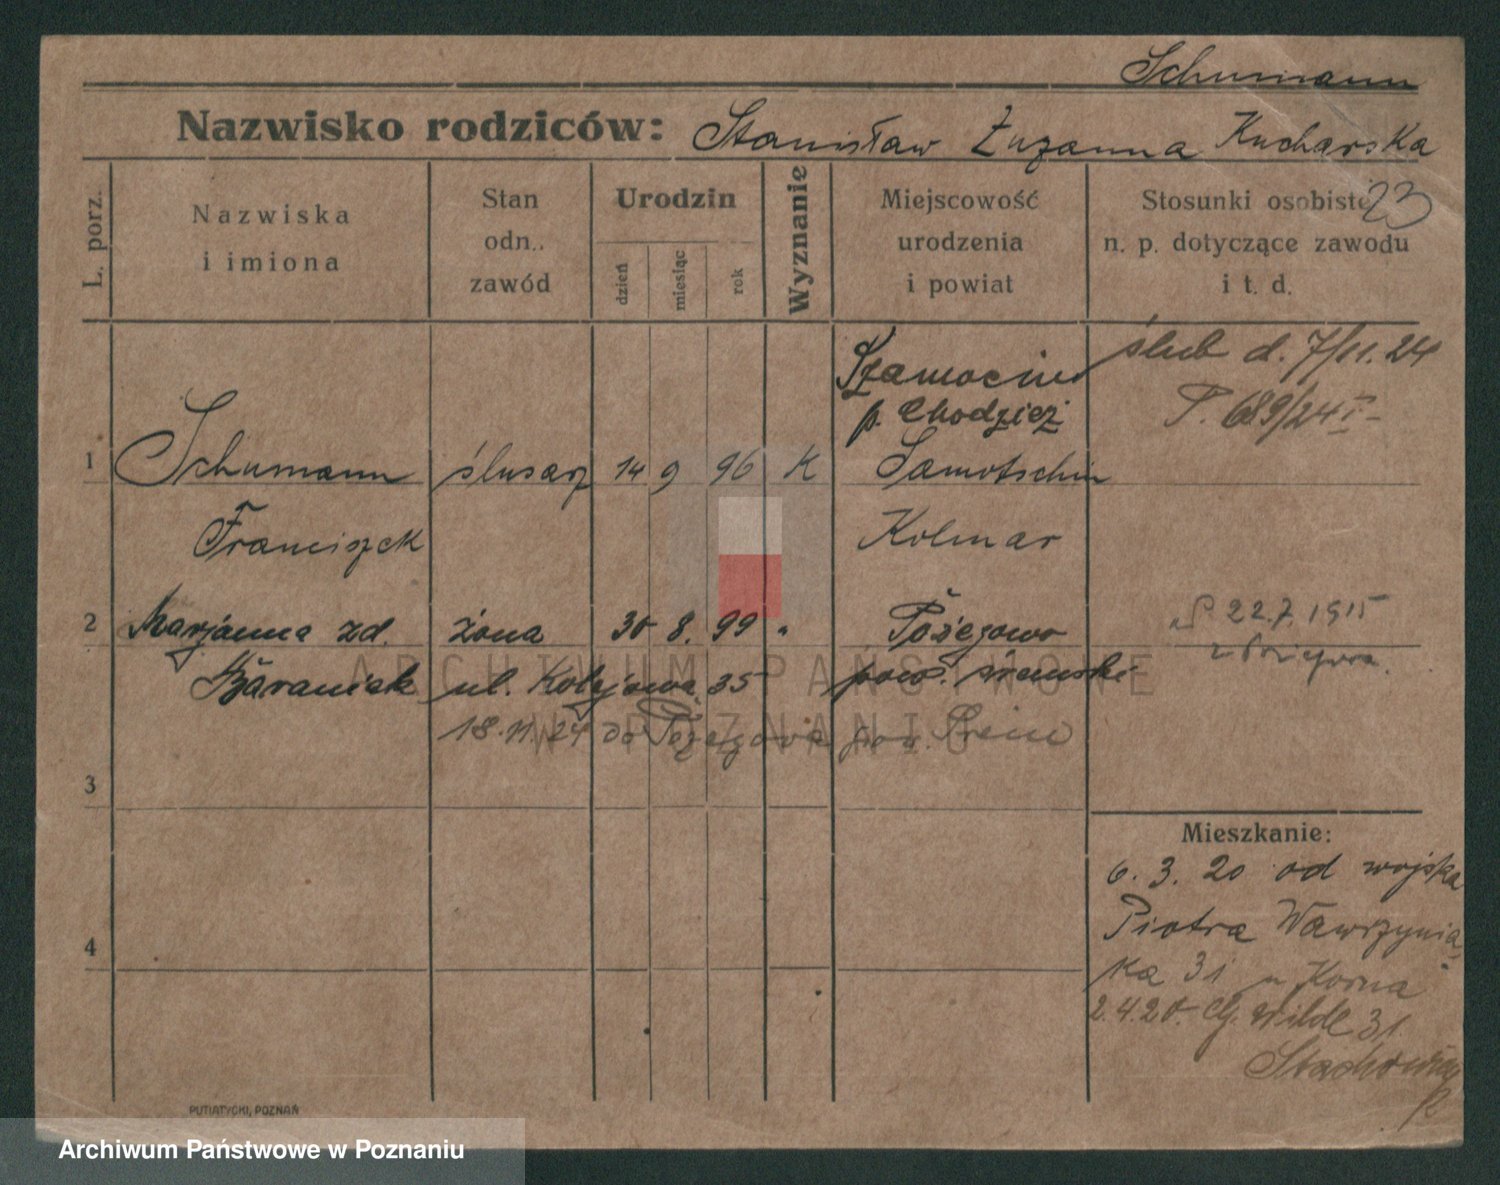 Schumann
Nazwisko rodziców: Stanisław Zuzanna Kucharska
23
L. porz.
Nazwiska
i imiona
Stan
odn..
zawód
Urodzin
dzień
miesiąc
rok
Wyznanie
Miejscowość
urodzenia
i powiat
Stosunki osobiste
n. p. dotyczące zawodu
i t. d.
ślub d. 7/11. 24
P. 689/24
Szamocin
p. Chodzież
1 Schumann ślusarz 14 9 96 K Samotschin
Franciszek Kolmar
2 Marjanna zd. żona 30 8. 99 "
22.7.1915
Baraniak ul. Kolejowa 35 pow. śremski
18.11.24 do pow. Śrem
3
4
Mieszkanie:
6. 3. 20 od wojska
Piotra Wawrzynia
ka 31 u Korna
2.4.20. Wilde 31
PUTIATYCKI, POZNAŃ
ARCHIWUM PAŃSTWOWE
W POZNANIU
Archiwum Państwowe w Poznaniu